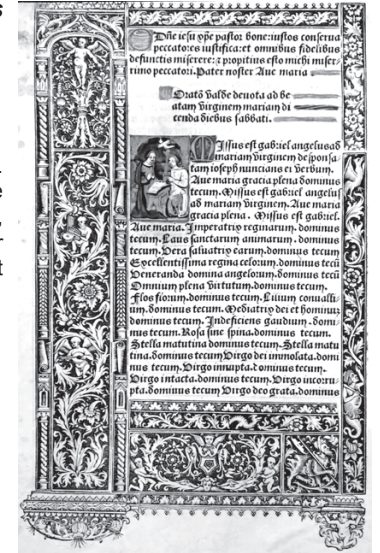 Dñe iesu xp̃e pastor bone: iustos conserua
peccatores iustifica: et omnibus fidelibus
defunctis miserere: ⁊ propitius esto michi miser
rimo peccatori. Pater noster Aue maria
Oratō valde deuota ad be
atam virginem mariam di
cenda diebus sabbati.
Missus est gabriel angelus ad
mariam virginem desponsa
tam ioseph nuncians ei verbum.
Aue maria gracia plena dominus
tecum. Missus est gabriel angelus
ad mariam virginem. Aue maria
gracia plena. Missus est gabriel.
Aue maria. Imperatrix reginarum. dominus
tecum. Laus sanctarum animarum. dominus
tecum. Vera saluatrix earum. dominus tecum
Excellentissima regina celorum. dominus tecū
Veneranda domina angelorum. dominus tecū
Omnium plena virtutum. dominus tecum.
Flos florum. dominus tecum. Lilium conualli
um. dominus tecum. Mediatrix dei et hominum
dominus tecum. Indeficiens gaudium. domi
nus tecum. Rosa sine spina. dominus tecum.
Stella matutina dominus tecum. Stella matu
tina. dominus tecum Virgo dei immolata. domi
nus tecum. Virgo innupta. dominus tecum.
Virgo intacta. dominus tecum. Virgo incorru
pta. dominus tecum Virgo deo grata. dominus